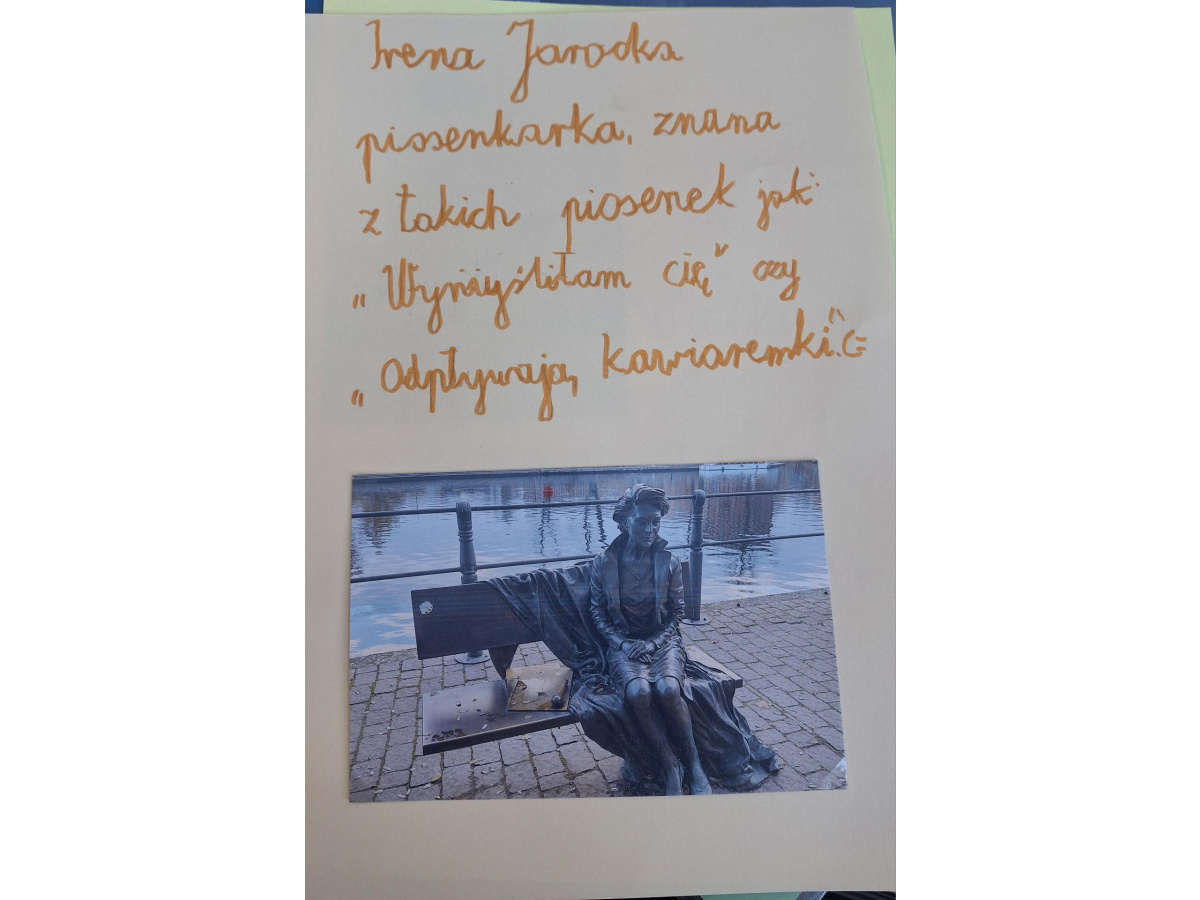 Irena Jarocka
piosenkarka, znana
z takich piosenek jak:
„Wymyśliłam cię" czy
„Odpływają kawiarenki". (=